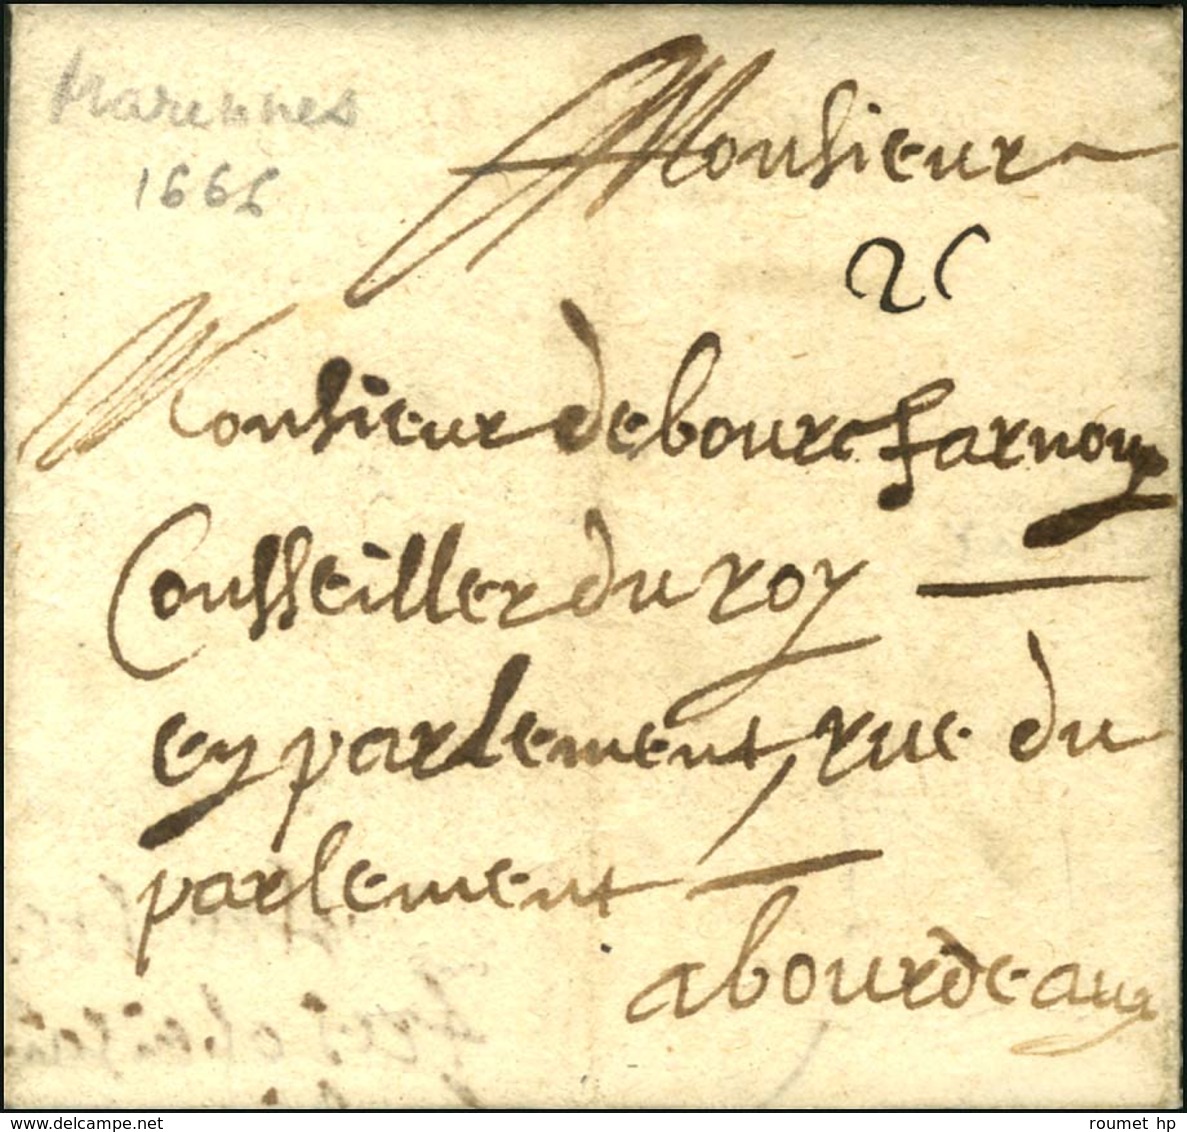 Marennes
1665
Monsieur
2 s
Monsieur de bourc
Consseiller du roy
en parlement, rue du
parlement
a bourdeaux
roumet hp